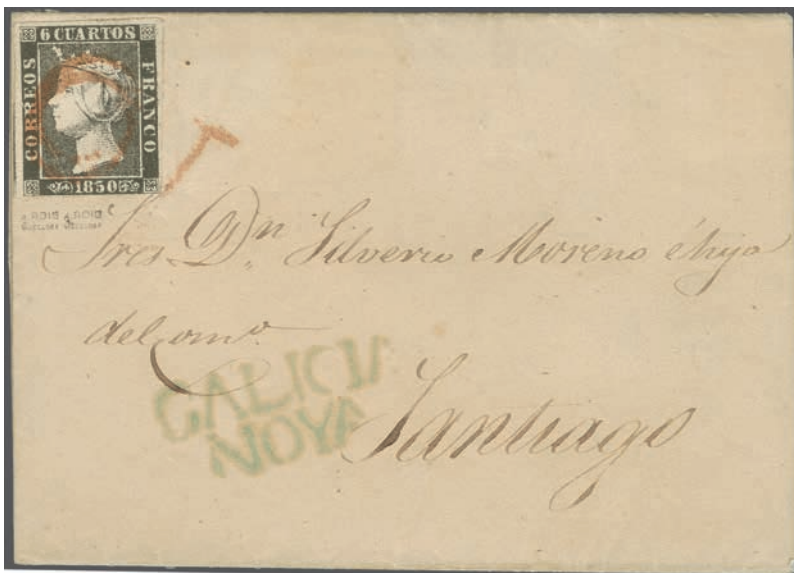 6 CUARTOS
CORREOS
FRANCO
1850
A. ROIG A. ROIG
Sres. Dn. Silverio Moreno é hijo
del com.o
GALICIA
NOYA
Santiago